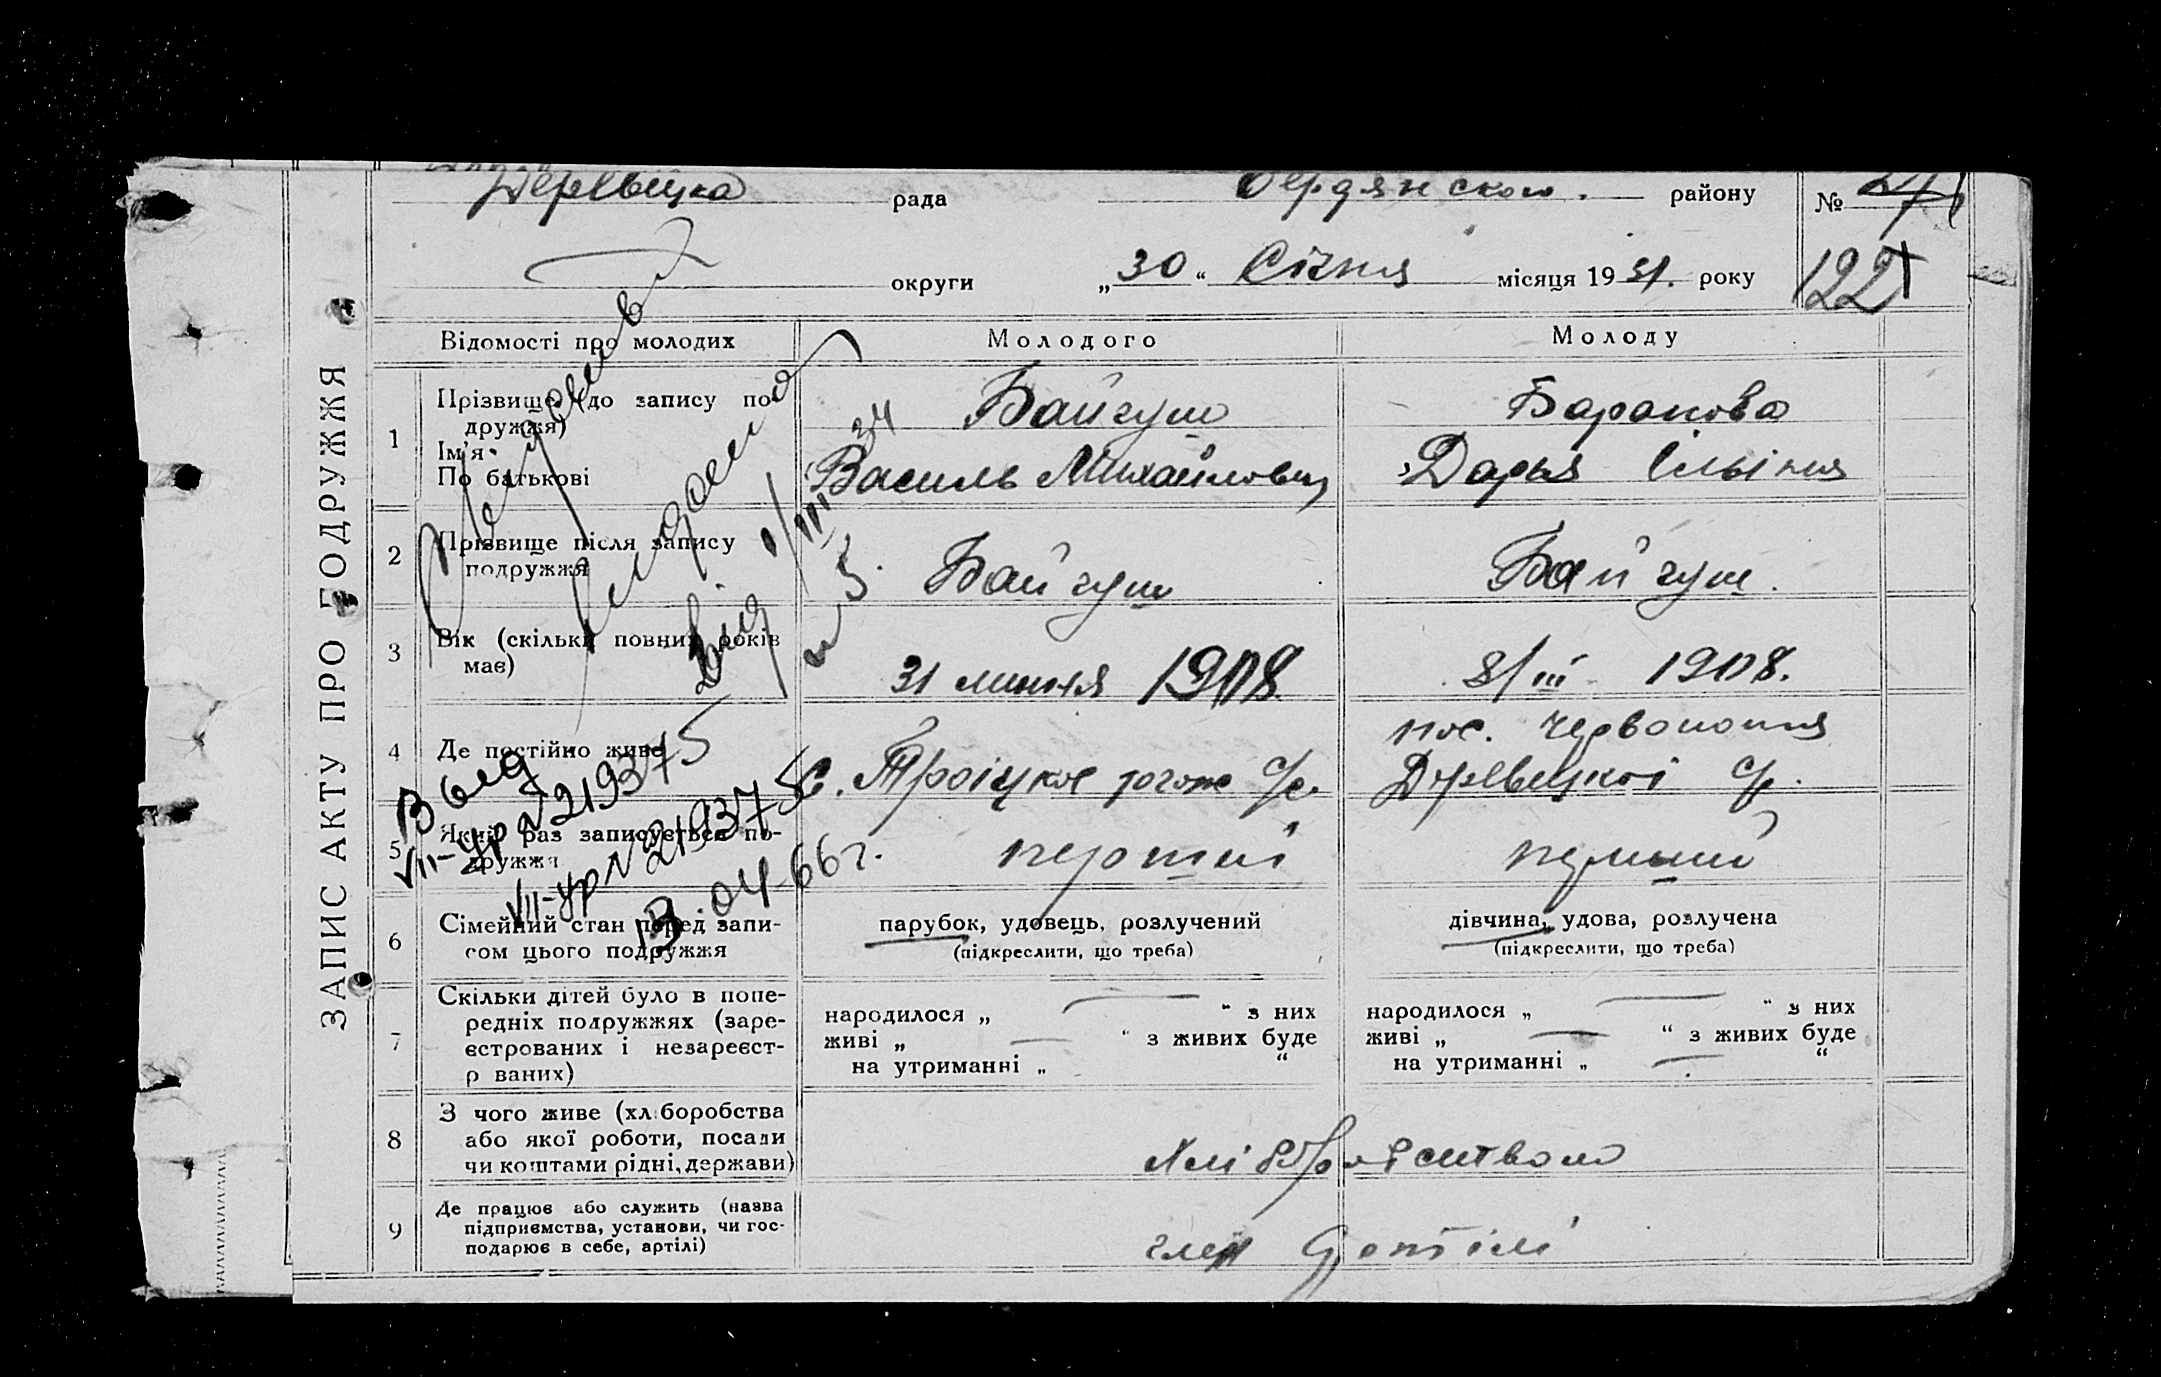 Деревецка рада Бердянского. району № 27
округи „30“ Січня місяця 1931. року 122
ЗАПИС АКТУ ПРО ПОДРУЖЖЯ
Відомості про молодих Молодого Молоду
1 Прізвище (до запису по- Байгуш Баранова
дружжя)
Ім'я Василь Михайлович Дарья Ільїнія
По батькові
2 Прізвище після запису Байгуш Байгуш.
подружжя
3 Вік (скільки повних років 31 липня 1908. 8/III 1908.
має)
пос. Червонопілля
4 Де постійно живе с. Троіцкое с/р. Деревецкої с/р.
5 Який раз записується по- перший перший
дружжя
6 Сімейний стан перед запи- парубок, удовець, розлучений дівчина, удова, розлучена
сом цього подружжя (підкреслити, що треба) (підкреслити, що треба)
7 Скільки дітей було в попе- народилося „ “ з них народилося „ “ з них
редніх подружжях (заре- живі „ “ з живих буде живі „ “ з живих буде
єстрованих і незареєст- на утриманні „ “ на утриманні „ “
р ваних)
8 З чого живе (хліборобства
або якої роботи, посади Хліборобством
чи коштами рідні, держави)
9 Де працює або служить (назва
підприємства, установи, чи гос- член Артілі
подарює в себе, артілі)
від 1/III 34
№ 5.
Выд
VII-Ур №219375
VII-Ур №219375
13.04.66г.